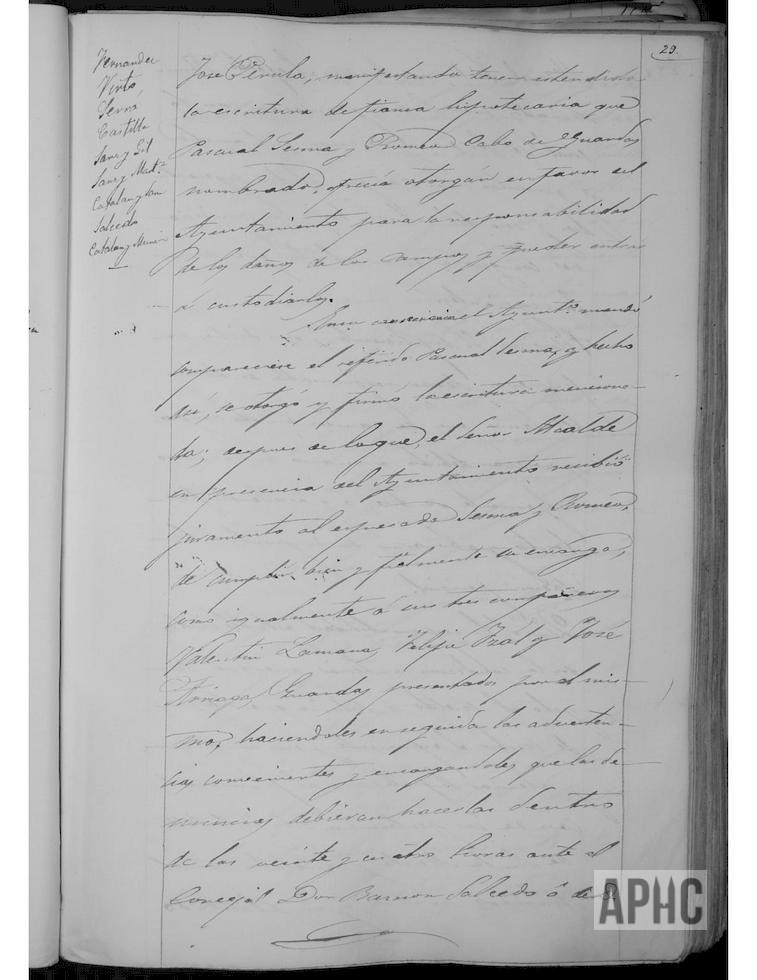 29.
Fernandez
Virto
Serra
Castillo
Sanz y Gil
Sanz y Mart.z
Catalan y San
Salcedo
Catalan y Munar
José Perula, manifestando tener estendida
la escritura de fianza hipotecaria que
Pascual Sesma y Romeo Cabo de Guardas
nombrado, ofrecia otorgar en favor del
Ayuntamiento para la responsabilidad
de los daños de los campos y poder entrar
á custodiarlos.
En su el Ayunt.o mandó
compareciese el referido Pascual Sesma, y hecho
asi, se otorgó y firmó la escritura menciona-
da; despues de lo que, el Señor Alcalde
en presencia del Ayuntamiento recibió
juramento al espresado Sesma y Romeo,
de cumplir bien y fielmente su encargo,
como igualmente á sus tres compañeros
Valentin Lamana, Felipe Izal y José
Arriaga, Guardas presentados por el mis-
mo, haciendoles en seguida las adverten-
cias convenientes y encargandoles que las de-
nuncias debieran hacerlas dentro
de las veinte y cuatro horas ante el
Concejal Don Ramon Salcedo ó
APHC